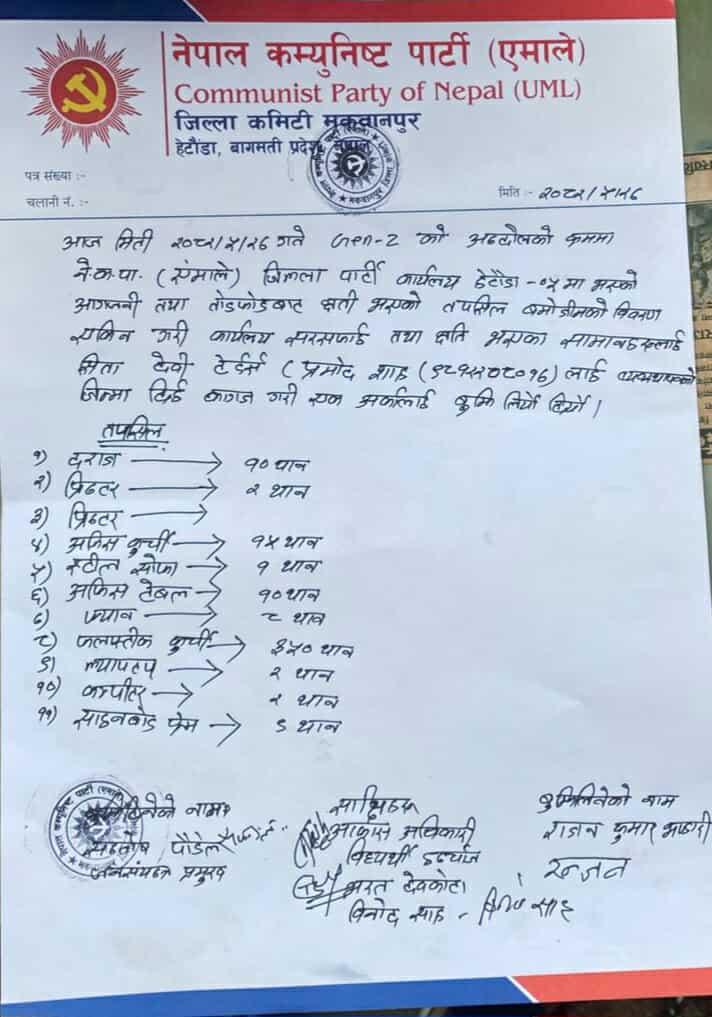 नेपाल कम्युनिष्ट पार्टी (एमाले)
Communist Party of Nepal (UML)
जिल्ला कमिटी मकवानपुर
हेटौंडा, बागमती प्रदेश, नेपाल
पत्र संख्या :-
चलानी नं. :-
मिति :- २०८२/५/२६
आज मिती २०८२/५/२६ गते Gen-Z को क्रममा
ने.क.पा. (एमाले) जिल्ला पार्टी कार्यालय हेटौडा -०५ मा भएको
आगजनी तथा तोडफोडबाट क्षती भएको तपसिल बमोजीमको विवरण
एकिन गरी कार्यालय सरसफाई तथा क्षति भएका
सिता देवी टेर्डर्स (प्रमोद शाह (लाई
जिम्मा दिई कागज गरी एक अर्कालाई बुझि लियौं दियौं।
तपसिल
१) दराज → १० थान
२) प्रिन्टर → २ थान
३) प्रिन्टर →
४) अफिस कुर्ची → १५ थान
५) स्टील सोफा → १ थान
६) अफिस टेबल → १० थान
७) फ्यान → ८ थान
८) कुर्ची → ३५० थान
९) ल्यापटप → २ थान
१०) → २ थान
११) साइनबोर्ड फ्रेम → ६ थान
नाम
पौडेल
जनसंगठन प्रमुख
साक्षिहरू
आकास अधिकारी
भरत देवकोटा
विनोद साह - विनोद साह
बुझिलिनेको नाम
राजन कुमार भण्डारी